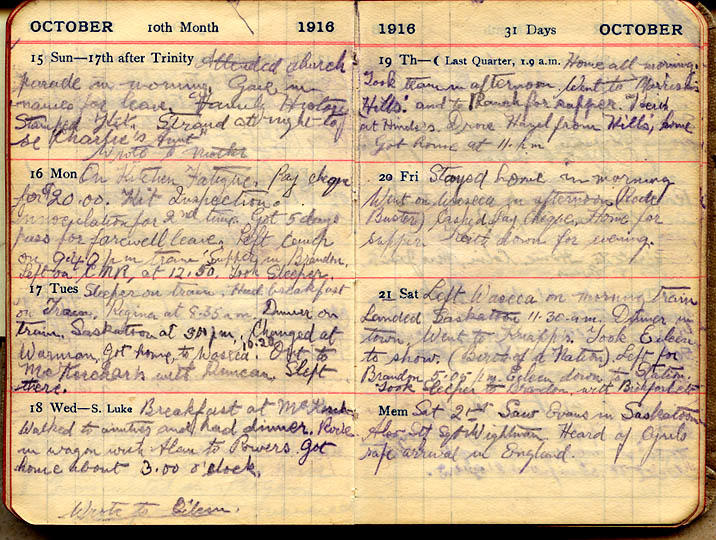 OCTOBER 10th Month 1916
15 Sun—17th after Trinity Attended church
parade in morning. Gave in
names for leave. Family History
Stamped Strand at night to
see "Charlie's Aunt"
Wrote to Mother
16 Mon On Kitchen Fatigue. Pay cheque
for $20.00. Kit Inspection.
innoculation for 2nd time. Got 5 days
pass for farewell leave. Left camp
on p m train. Supper in Brandon.
Left on C.N.R. at 12.50. Took Sleeper.
17 Tues Sleeper on train. Had breakfast
on Train. Regina at 8.35 a.m. Dinner on
train. Saskatoon at p.m. Changed at
Warman, got home, to Waseca 10.20. Out to
McKerchars with Duncan. Slept
there.
18 Wed—S. Luke Breakfast at
Walked to aunties and had dinner. Rode
in wagon with Alan to Powers. Got
home about 3.00 o'clock.
Wrote to Eileen.
1916 31 Days OCTOBER
19 Th—☾ Last Quarter, 1.9 a.m. Home all morning.
Took team in afternoon. Went to
Hills' and to Ranch for supper.
at Hinde's. Drove Hazel from Hills' home
Got home at 11. p.m
20 Fri Stayed home in morning
Went on Waseca in afternoon (Rode
Buster) Cashed pay cheque. Home for
supper. down for evening.
21 Sat Left Waseca on morning train
Landed Saskatoon 11-30-a.m. Dinner in
town. Went to Knapp's. Took Eileen
to show. (Birth of a Nation). Left for
Brandon 5.05 p.m. Eileen down to Station.
Took Sleeper to Brandon, with
Mem Sat 21st Saw Evans in Saskatoon
Also Sgt Wightman. Heard of Cyrils
safe arrival in England.